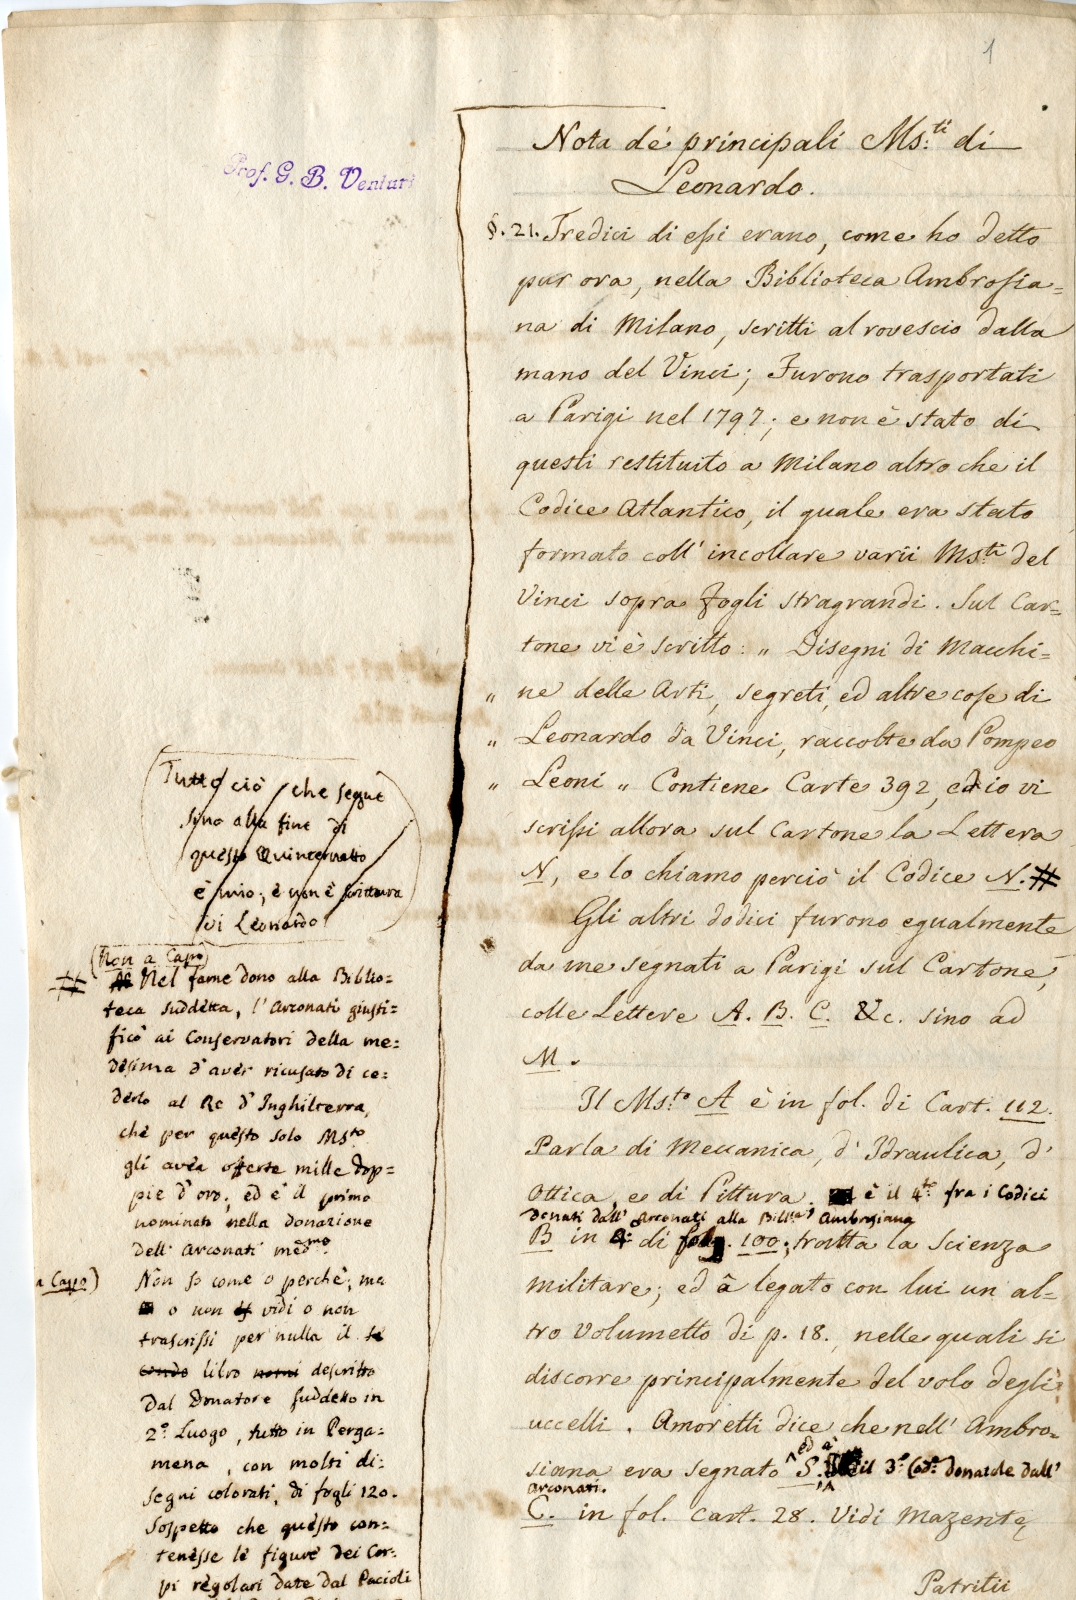 1
Prof. G. B. Venturi
Nota de' principali Ms.ti di
Leonardo.
§. 21. Tredici di essi erano, come ho detto
pur ora, nella Biblioteca Ambrosia=
na di Milano, scritti al rovescio dalla
mano del Vinci; Furono trasportati
a Parigi nel 1797; e non è stato di
questi restituito a Milano altro che il
Codice Atlantico, il quale era stato
formato coll' incollare varii Ms.ti del
Vinci sopra fogli stragrandi. Sul Car=
tone vi è scritto: „ Disegni di Macchi=
„ ne delle Arti, segreti, ed altre cose di
„ Leonardo da Vinci, raccolte da Pompeo
„ Leoni „ Contiene Carte 392, ed io vi
scrissi allora sul Cartone la Lettera
N, e lo chiamo perciò il Codice N. #
Gli altri dodici furono egualmente
da me segnati a Parigi sul Cartone,
colle Lettere A. B. C. &c. sino ad
M.
Il Ms.to A è in fol. di Cart. 112.
Parla di Meccanica, d' Idraulica, d'
Ottica, e di Pittura. è il 4.to fra i Codici
donati dall' Arconati alla Bill.ca Ambrosiana
B in 4.° di fog. 100; tratta la Scienza
militare; ed à legato con lui un al=
tro Volumetto di p. 18, nelle quali si
discorre principalmente del volo degli
uccelli. Amoretti dice che nell' Ambro=
ed è
siana era segnato S. il 3.° Cod.e donatole dall'
Arconati.
C. in fol. Cart. 28. Vidi Mazenta,
Patritii
Tutto ciò che segue
sino alla fine di
questo Quinternetto
è mio, e non è scrittura
di Leonardo
(Non a Capo)
# Nel fame dono alla Biblio=
teca suddetta, l' Arconati giusti=
ficò ai Conservatori della me=
desima d' aver ricusato di ce=
derlo al Re d' Inghilterra,
che per questo solo Ms.to
gli avea offerte mille dop=
pie d' oro; ed è il primo
nominato nella donazione
dell' Arconati med.mo
a Capo) Non so come o perchè; ma
o non vidi o non
trascrissi per nulla il se
condo libro descritto
dal Donatore suddetto in
2.° Luogo, tutto in Perga=
mena, con molti di=
segni colorati, di fogli 120.
Sospetto che questo con=
tenesse le figure dei Cor=
pi regolari date dal Pacioli